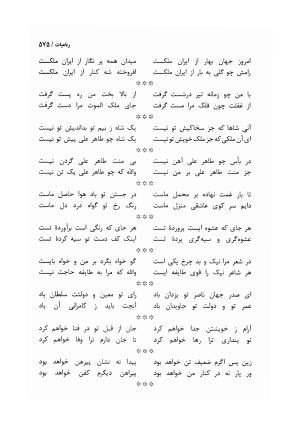 رباعیات / ۵۷۵
امروز جهان بهار از ایران ملکست میدان همه پر نگار از ایران ملکست
رامش چو گلی به بار از ایران ملکست افروخته شه کنار از ایران ملکست
***
با من چو زمانه تیر درشست گرفت از بالا بخت من ره پست گرفت
از غفلت چون فلک مرا مست گرفت جای ملک الموت مرا دست گرفت
***
آنی شاها که جز سخاکیش تو نیست یک شاه ز بیم تو بداندیش تو نیست
ای آن ملکی که جز ملک خویش تو نیست یک شاه چو طاهر علی پیش تو نیست
***
در بأس چو طاهر علی آهن نیست بی منت طاهر علی گردن نیست
جز منت طاهر علی بر من نیست والله که چو طاهر علی یک تن نیست
***
تا باز غمت نهاده بر محمل ماست در جستن تو باد هوا حاصل ماست
دایم سر کوی عاشقی منزل ماست رنگ رخ تو گواه درد دل ماست
***
هر جای که عشوه ایست پروردهٔ تست هر جای که رنگی است برآوردهٔ تست
عشوه‌گری و سیه‌گری پردهٔ تست اینک کف دست تو سیه کردهٔ تست
***
در شعر مرا نیک و بد چرخ یکی است گو خواه بگرد بر من و خواه بایست
هر شاعر نیک را قوی طایفه ایست والله که مرا به طایفه حاجت نیست
***
ای صدر جهان ناصر تو یزدان باد رای تو معین و دولتت سلطان باد
عمر تو و دولت تو جاویدان باد آنچت باید ز کامرانی آن باد
***
آرام ز خویشتن جدا خواهم کرد جان از قبل تو در فنا خواهم کرد
تو پنداری ترا رها خواهم کرد تا جان دارم ترا وفا خواهم کرد
***
زین پس اگرم ضعیف تن خواهد بود پیدا نه نشان پیرهن خواهد بود
ور یار نه در کنار من خواهد بود پیراهن دیگرم کفن خواهد بود
***